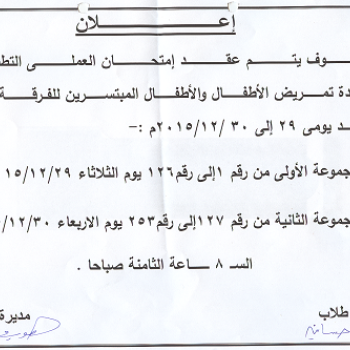 إعـــــلان
ـوف يتـــم عقـــد إمتحـــان العملـــى التط
ـدة تمريض الأطفال والأطفال المبتسرين للفرقة
ـد يومى ٢٩ إلى ٣٠ /٢٠١٥/١٢م :-
ـجموعة الأولى من رقم ١إلى رقم١٢٦ يوم الثلاثاء ١٥/١٢/٢٩
ـجموعة الثانية من رقم ١٢٧إلى رقم٢٥٣ يوم الاربعاء ١٢/٣٠/
السـ ٨ ـــاعة الثامنة صباحا .
طلاب
مديرة